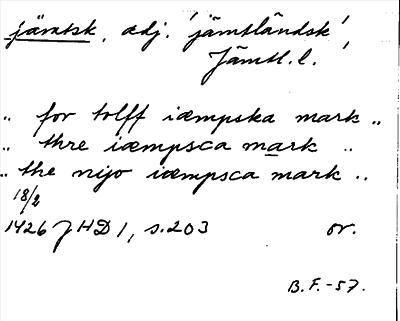 jämtsk, adj. 'jämtländsk'
Jämtl. l.
.. for tolff iæmpska mark ..
.. thre iæmpsca mark ..
.. the nijo iæmpsca mark ..
18/2
1426 JHD 1, s. 203 or.
B.F.-57.